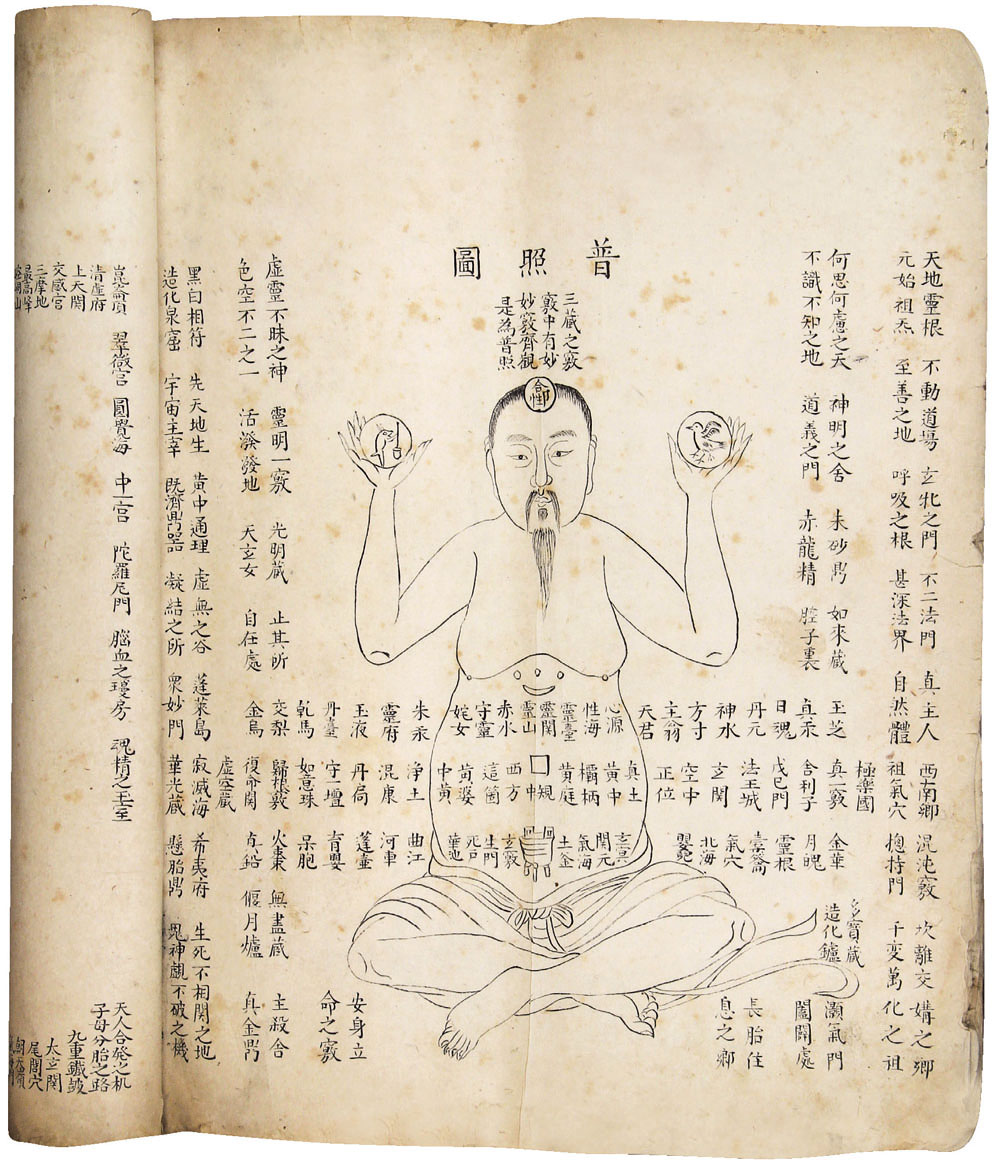 天地靈根 不動道場 玄牝之門 不二法門 真主人 西南鄉 混沌竅 坎離交媾之鄉
元始祖炁 至善之地 呼吸之根 甚深法界 自然體 祖氣穴 總持門 千变萬化之祖
極樂國 多寶藏
何思何慮之天 神明之舍 朱砂鼎 如來藏 玉芝 真一竅 金華 造化鑪 灝氣門
不識不知之地 道義之門 赤龍精 腔子裏 真汞 舍利子 月魄 闔闢處
普照圖
三藏之竅
竅中有妙
妙竅齊觀
是為普照
日魂 戊己門 靈根
丹元 法王城 橐籥
神水 玄関 氣穴
方寸 空中 北海
主翁 正位 嬰兒
天君
心源 真土 玄冥
性海 黄中 関元
靈臺 欛柄 氣海
靈関 黄庭 土釜
靈山 規中
赤水 西方 玄竅
守靈 這箇 生門
姹女 黄婆 死戶
中黄 華池
朱汞 浄土 曲江
靈府 混康 河車
玉液 丹局 蓬壺
丹臺 守一壇 育嬰
乾馬 如意珠 呆胞
長胎住
息之鄉
安身立
命之竅
虛靈不昧之神 靈明一竅 光明藏 止其所 交梨 歸根竅 火棗 無盡藏 主殺合
色空不二之一 活潑潑地 天玄女 自在處 金烏 復命関 真鉛 偃月爐 真金鼎
虛空藏
黑白相符 先天地生 黄中通理 虛無之谷 蓬萊島 寂滅海 希夷府 生死不相関之地
造化泉窟 宇宙主宰 既濟鼎器 凝結之所 衆妙門 華光藏 懸胎鼎 鬼神覷不破之機
崑崙頂 翠微宮 圓覺海 中一宮 陀羅尼門 腦血之瓊房 魂精之玉室 天人合發之机
清虛府 子母分胎之路
上天関 九重鐵鼓
交感宮 太玄関
三摩地 尾閭穴
最高峰